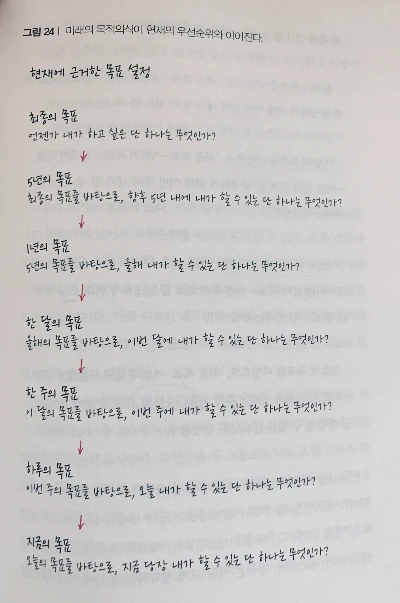 그림 24 | 미래의 목적의식이 현재의 우선순위와 이어진다.
현재에 근거한 목표 설정
최종의 목표
언젠가 내가 하고 싶은 단 하나는 무엇인가?
5년의 목표
최종의 목표를 바탕으로, 향후 5년 내에 내가 할 수 있는 단 하나는 무엇인가?
1년의 목표
5년의 목표를 바탕으로, 올해 내가 할 수 있는 단 하나는 무엇인가?
한 달의 목표
올해의 목표를 바탕으로, 이번 달에 내가 할 수 있는 단 하나는 무엇인가?
한 주의 목표
이 달의 목표를 바탕으로, 이번 주에 내가 할 수 있는 단 하나는 무엇인가?
하루의 목표
이번 주의 목표를 바탕으로, 오늘 내가 할 수 있는 단 하나는 무엇인가?
지금의 목표
오늘의 목표를 바탕으로, 지금 당장 내가 할 수 있는 단 하나는 무엇인가?